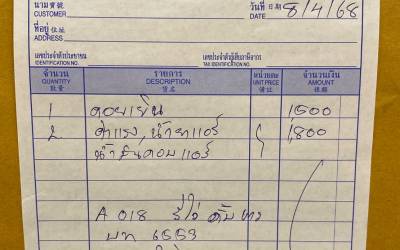 นาม 寶號
CUSTOMER
วันที่ 日期
DATE 8/4/68
ที่อยู่ 住址
ADDRESS
เลขประจำตัวประชาชน
IDENTIFICATION NO.
เลขประจำตัวผู้เสียภาษีอากร
TAX IDENTIFICATION NO.
จำนวน รายการ หน่วยละ จำนวนเงิน
QUANTITY DESCRIPTION UNIT PRICE AMOUNT
數量 貨名 價目 銀額
1 คอยเย็น 1500
2 ค่าแรง, น้ำยาแอร์ 1,800
น้ำมันคอมแอร์
A 018
บท 6553